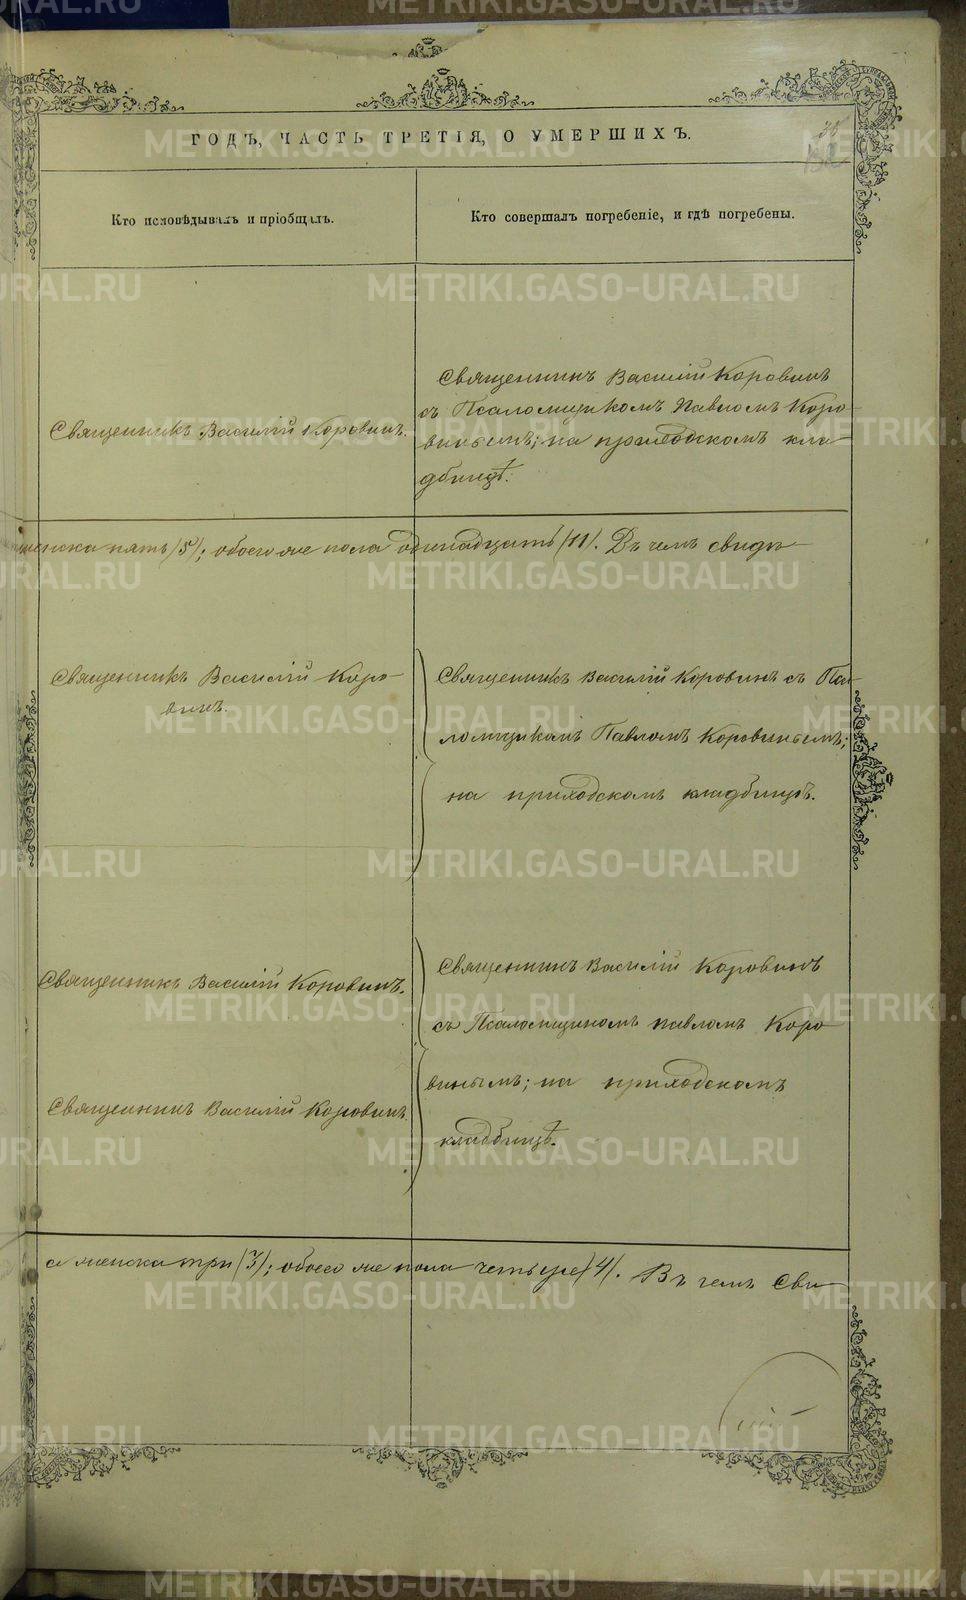 ГОДЪ, ЧАСТЬ ТРЕТІЯ, О УМЕРШИХЪ.
Кто исповѣдывалъ и пріобщалъ.
Кто совершалъ погребеніе, и гдѣ погребены.
Священникъ Василій Коровинъ.
Священникъ Василій Коровинъ
съ Псаломщикомъ Павломъ Коро-
винымъ; на приходскомъ кла-
дбищѣ.
женска пять (5); обоего же пола одинадцать (11). Въ чемъ свидѣ-
Священникъ Василій Коро-
винъ.
Священникъ Василій Коровинъ съ Пса-
ломщикомъ Павломъ Коровинымъ;
на приходскомъ кладбищѣ.
Священникъ Василій Коровинъ.
Священникъ Василій Коровинъ
Священникъ Василій Коровинъ
съ Псаломщикомъ Павломъ Коро
винымъ; на приходскомъ
кладбищѣ.
а женска три (3); обоего же пола четыре (4). Въ чемъ Сви-
METRIKI.GASO-URAL.RU